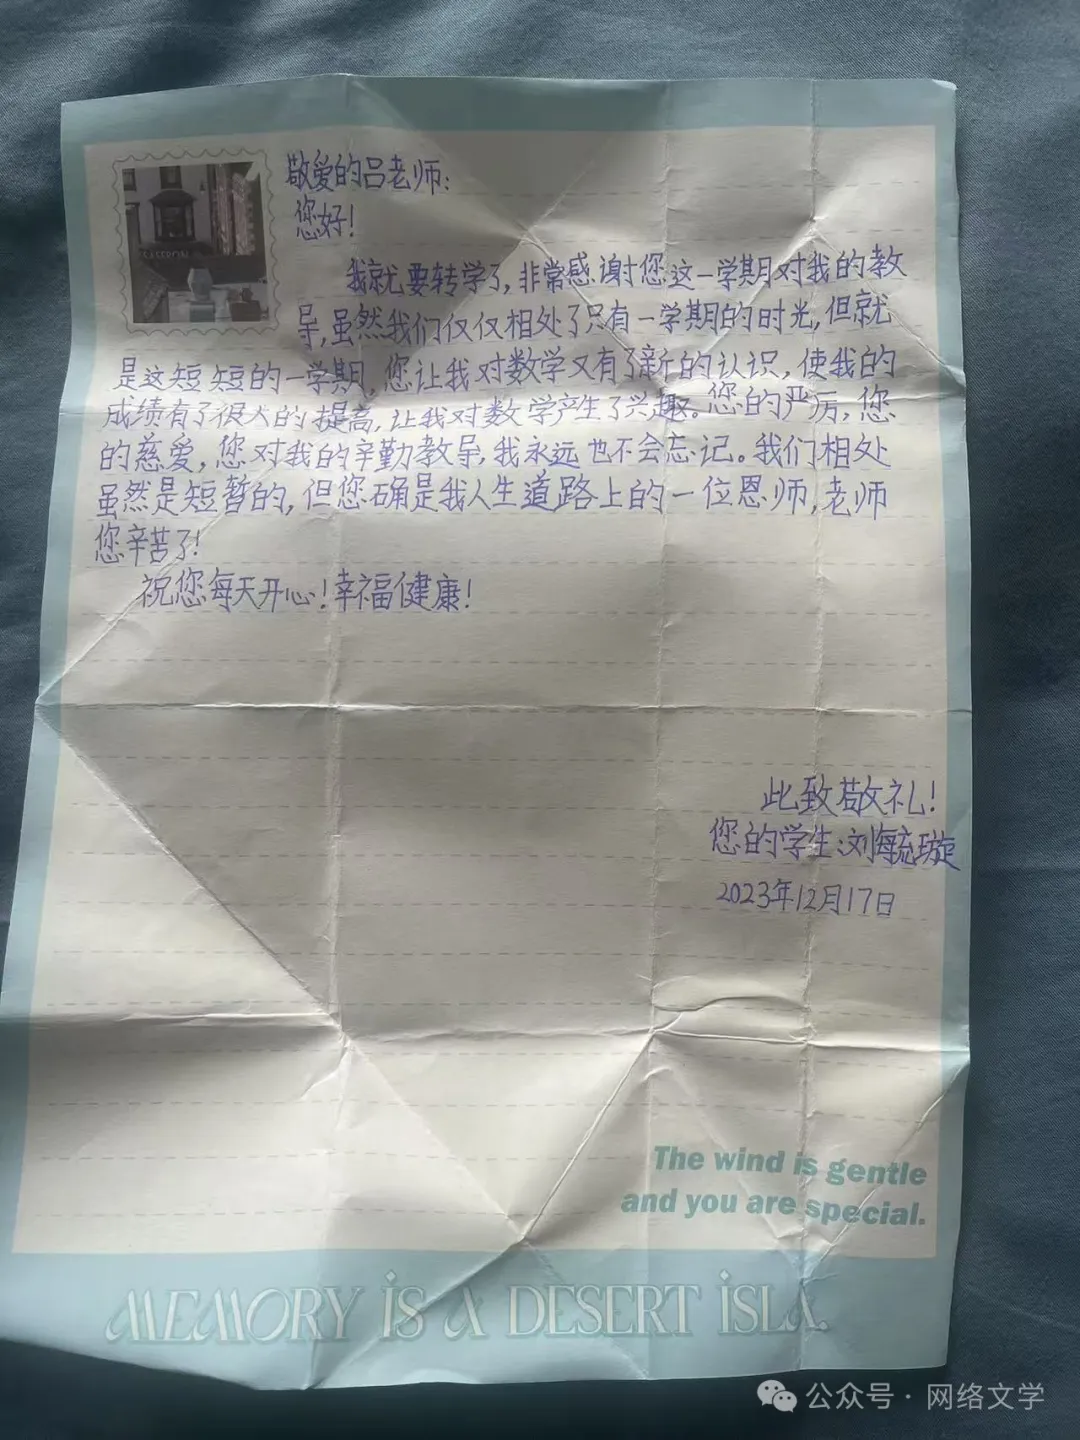 敬爱的吕老师:
您好!
我就要转学了,非常感谢您这一学期对我的教
导,虽然我们仅仅相处了只有一学期的时光,但就
是这短短的一学期,您让我对数学又有了新的认识,使我的
成绩有了很大的提高,让我对数学产生了兴趣。您的严厉,您
的慈爱,您对我的辛勤教导,我永远也不会忘记。我们相处
虽然是短暂的,但您确是我人生道路上的一位恩师,老师
您辛苦了!
祝您每天开心!幸福健康!
此致敬礼!
您的学生:刘海毓璇
2023年12月17日
The wind is gentle
and you are special.
MEMORY iS A DESERT iSLA
公众号·网络文学